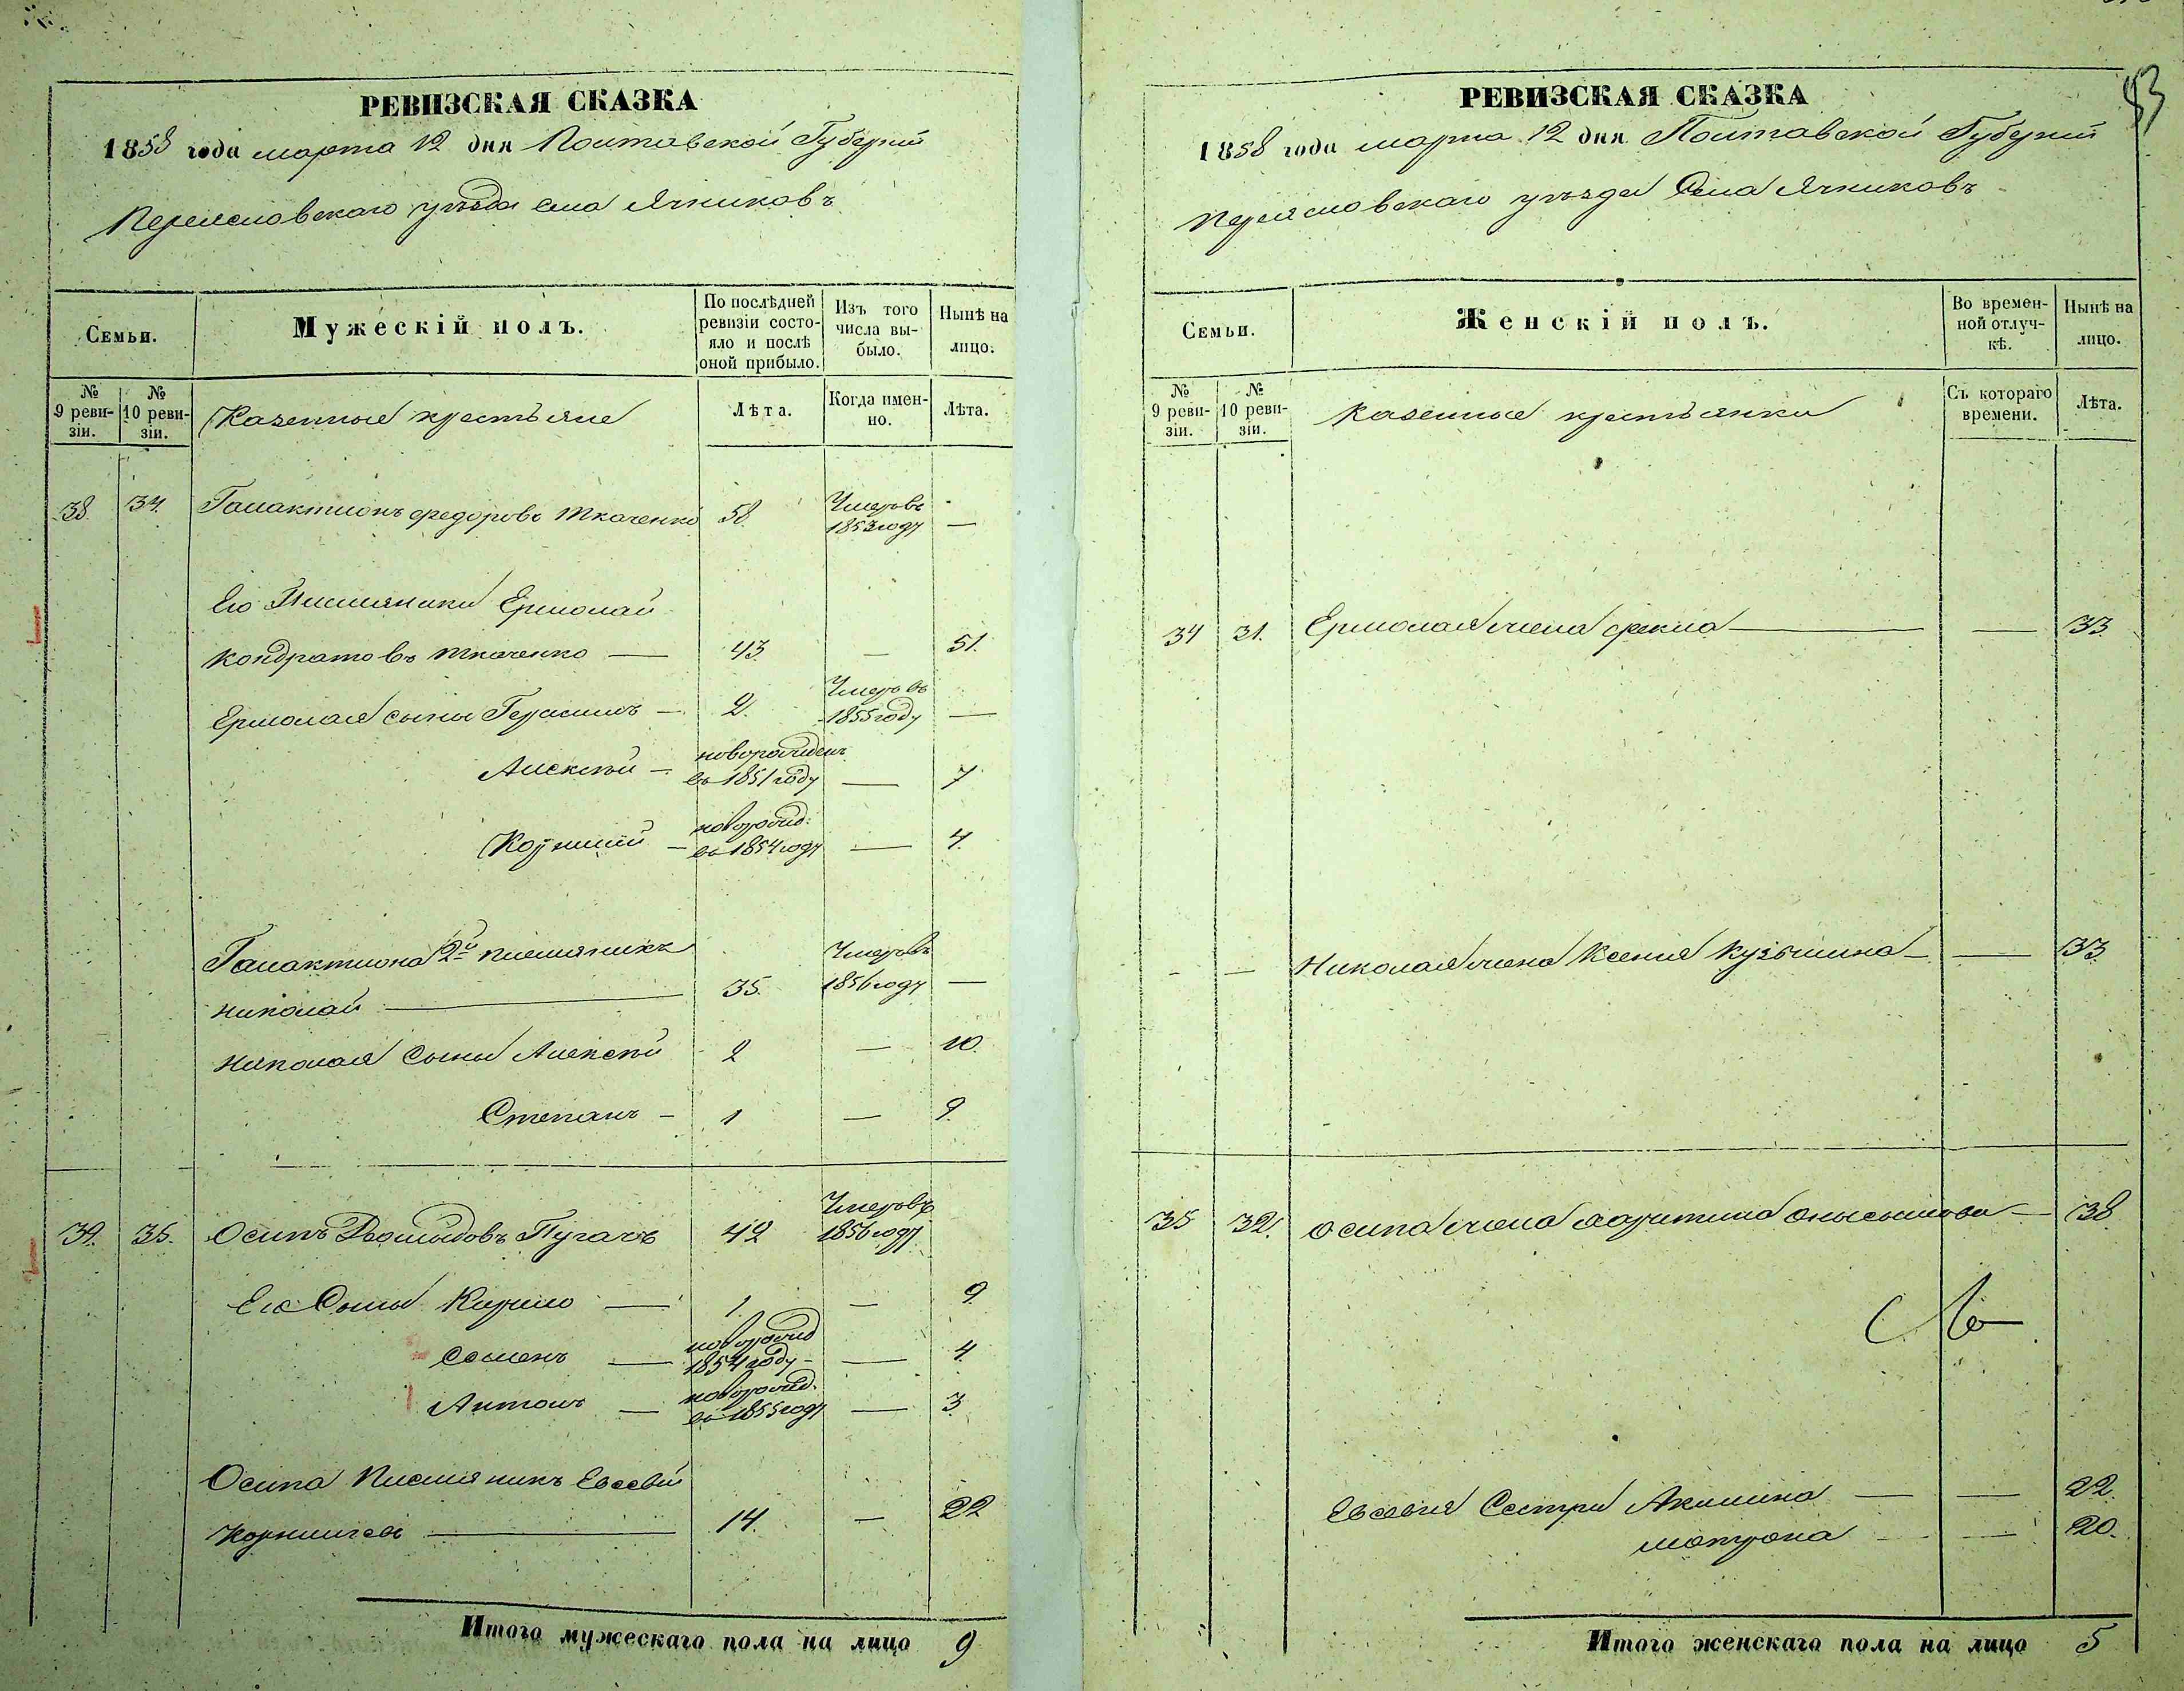 РЕВИЗСКАЯ СКАЗКА
1858 года марта 12 дня Полтавской Губерніи
Переяславскаго уѣзда села Ячниковъ
Семьи.
Мужескій полъ.
По послѣдней ревизіи состояло и послѣ оной прибыло.
Изъ того числа выбыло.
Нынѣ на лицо.
№ 9 ревизіи.
№ 10 ревизіи.
Казенные крестьяне
Лѣта.
Когда именно.
Лѣта.
38. 34. Галактіонъ Федоровъ Ткаченко 58. Умеръ въ 1853 году —
Его Племяники Ермолай
Кондратовъ Ткаченко — 43 — 51.
Ермолая сыны Герасимъ — 2. Умеръ въ 1855 году —
Алексѣй — новорожденъ въ 1851 году — 7
Корнилій — новорожд: въ 1854 году — 4.
Галактиона 2й племяникъ
Николай — 35. Умеръ въ 1856 году —
Николая Сыны Алексѣй 2 — 10.
Степанъ — 1 — 9.
39. 35. Осипъ Демидовъ Пугачъ 42 Умеръ въ 1856 году
Его Сыны Кирило — 1. — 9.
Семенъ — новорожд 1854 году — — 4.
Антонъ — новорожд. въ 1855 году — 3
Осипа Племяникъ Евсевій
Корниліевъ — 14. — 22
Итого мужескаго пола на лицо 9
83
РЕВИЗСКАЯ СКАЗКА
1858 года марта 12 дня Полтавской Губерніи
Переяславскаго уѣзда Села Ячниковъ
Семьи.
Женскій полъ.
Во временной отлучкѣ.
Нынѣ на лицо.
№ 9 ревизіи.
№ 10 ревизіи.
Казенные крестьянки
Съ котораго времени.
Лѣта.
34 31. Ермолая жена Фекла — — 33.
- — Николая жена Ксенія Кузьмина — — 33.
35 32. Осипа жена — 38
Евсевія Сестры Акилина — — 22.
Мотрона — — 20.
Итого женскаго пола на лицо 5